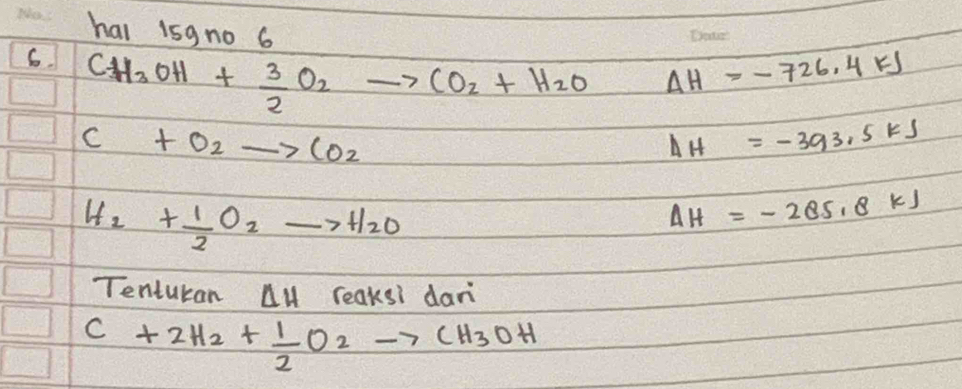 No.:
Date:
hal 159 no 6
6. CH3OH + 3/2 O2 → CO2 + H2O ΔH = -726,4 kJ
C + O2 → CO2 ΔH = -393,5 kJ
H2 + 1/2 O2 → H2O ΔH = -285,8 kJ
Tentukan ΔH reaksi dari
C + 2H2 + 1/2 O2 → CH3OH